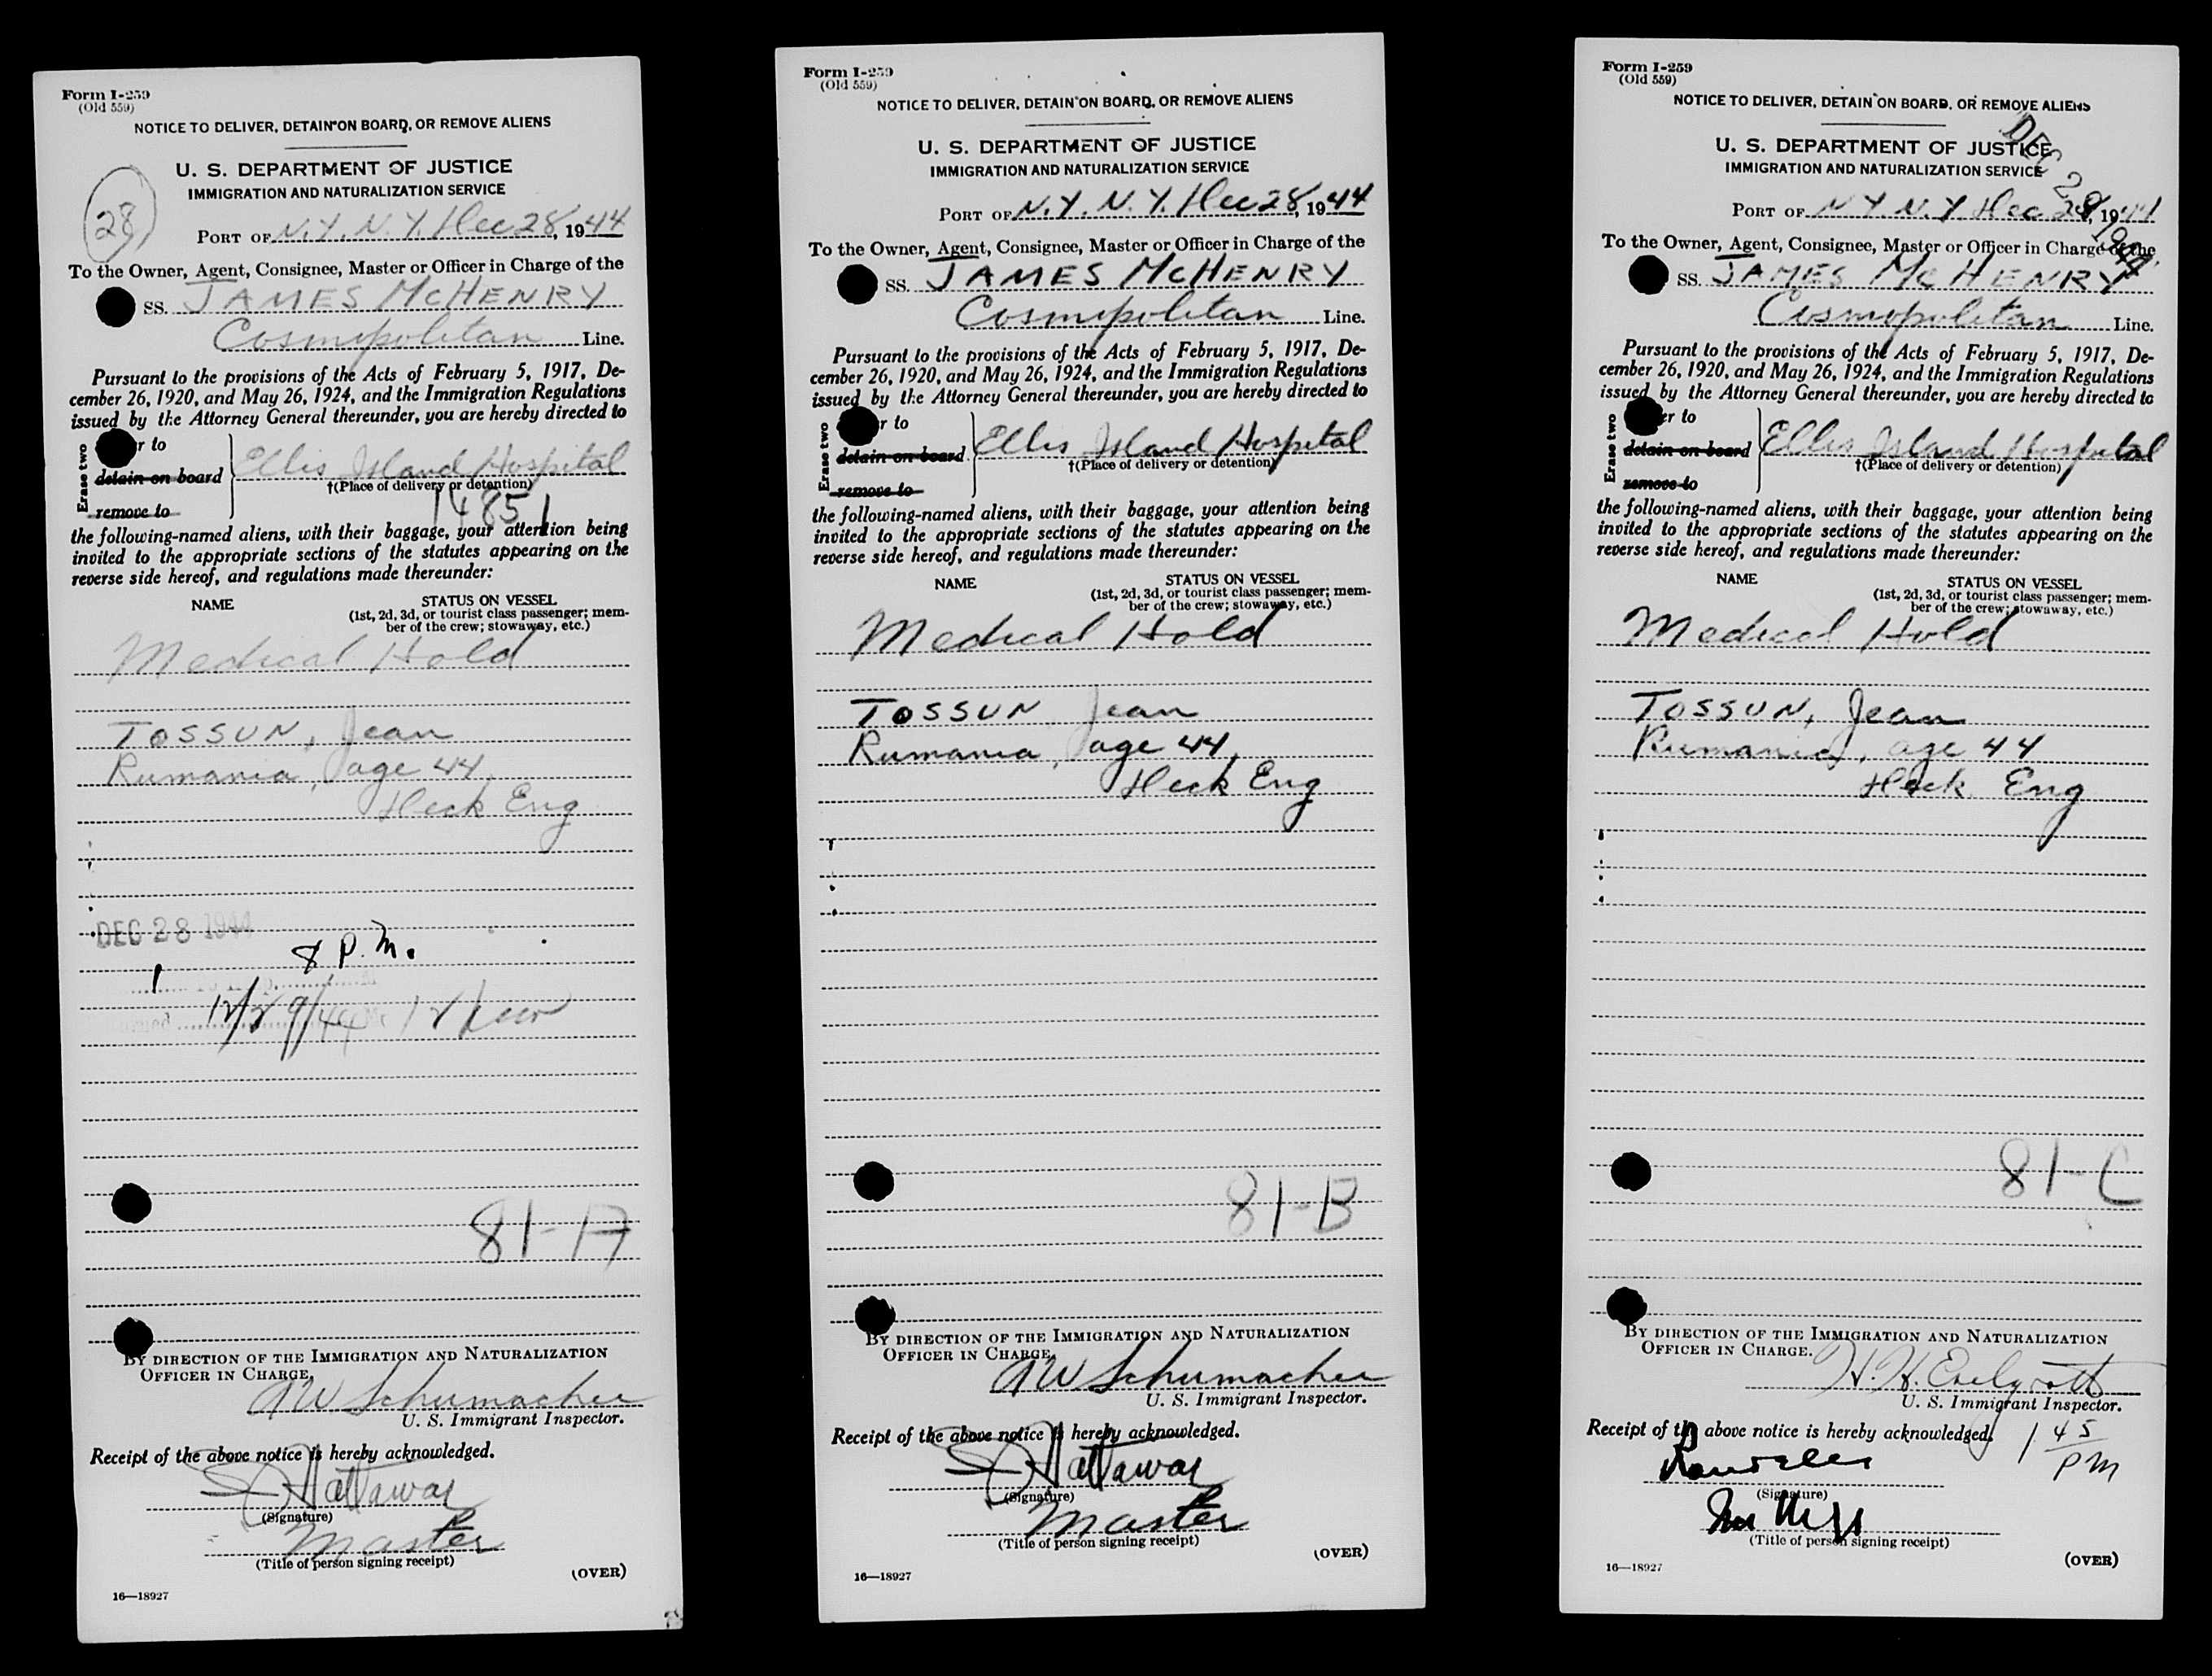 Form I-259
(Old 559)
NOTICE TO DELIVER, DETAIN ON BOARD, OR REMOVE ALIENS
U. S. DEPARTMENT OF JUSTICE
IMMIGRATION AND NATURALIZATION SERVICE
28
PORT OF N.Y. N.Y. Dec 28, 1944
To the Owner, Agent, Consignee, Master or Officer in Charge of the
SS. JAMES McHENRY
Cosmopolitan Line.
Pursuant to the provisions of the Acts of February 5, 1917, De-
cember 26, 1920, and May 26, 1924, and the Immigration Regulations
issued by the Attorney General thereunder, you are hereby directed to
Erase two
r to
detain on board
remove to
Ellis Island Hospital
†(Place of delivery or detention)
14851
the following-named aliens, with their baggage, your attention being
invited to the appropriate sections of the statutes appearing on the
reverse side hereof, and regulations made thereunder:
NAME
STATUS ON VESSEL
(1st, 2d, 3d, or tourist class passenger; mem-
ber of the crew; stowaway, etc.)
Medical Hold
TOSSUN, Jean
Rumania, age 44,
Deck Eng
DEC 28 1944
8 P.M.
1
12/29/44
81-A
BY DIRECTION OF THE IMMIGRATION AND NATURALIZATION
OFFICER IN CHARGE.
AW Schumacher
U. S. Immigrant Inspector.
Receipt of the above notice is hereby acknowledged.
Hattaway
(Signature)
Master
(Title of person signing receipt)
(OVER)
16—18927
Form I-259
(Old 559)
NOTICE TO DELIVER, DETAIN ON BOARD, OR REMOVE ALIENS
U. S. DEPARTMENT OF JUSTICE
IMMIGRATION AND NATURALIZATION SERVICE
PORT OF N.Y. N.Y. Dec 28, 1944
To the Owner, Agent, Consignee, Master or Officer in Charge of the
SS. JAMES McHENRY
Cosmopolitan Line.
Pursuant to the provisions of the Acts of February 5, 1917, De-
cember 26, 1920, and May 26, 1924, and the Immigration Regulations
issued by the Attorney General thereunder, you are hereby directed to
Erase two
r to
detain on board
remove to
Ellis Island Hospital
†(Place of delivery or detention)
the following-named aliens, with their baggage, your attention being
invited to the appropriate sections of the statutes appearing on the
reverse side hereof, and regulations made thereunder:
NAME
STATUS ON VESSEL
(1st, 2d, 3d, or tourist class passenger; mem-
ber of the crew; stowaway, etc.)
Medical Hold
TOSSUN Jean
Rumania, age 44,
Deck Eng
81-B
BY DIRECTION OF THE IMMIGRATION AND NATURALIZATION
OFFICER IN CHARGE.
AW Schumacher
U. S. Immigrant Inspector.
Receipt of the above notice is hereby acknowledged.
Hattaway
(Signature)
Master
(Title of person signing receipt)
(OVER)
16—18927
Form I-259
(Old 559)
NOTICE TO DELIVER, DETAIN ON BOARD, OR REMOVE ALIENS
U. S. DEPARTMENT OF JUSTICE
IMMIGRATION AND NATURALIZATION SERVICE
PORT OF N.Y. N.Y Dec 28, 1944
To the Owner, Agent, Consignee, Master or Officer in Charge of the
SS. JAMES McHENRY
Cosmopolitan Line.
Pursuant to the provisions of the Acts of February 5, 1917, De-
cember 26, 1920, and May 26, 1924, and the Immigration Regulations
issued by the Attorney General thereunder, you are hereby directed to
Erase two
er to
detain on board
remove to
Ellis Island Hospital
†(Place of delivery or detention)
the following-named aliens, with their baggage, your attention being
invited to the appropriate sections of the statutes appearing on the
reverse side hereof, and regulations made thereunder:
NAME
STATUS ON VESSEL
(1st, 2d, 3d, or tourist class passenger; mem-
ber of the crew; stowaway, etc.)
Medical Hold
TOSSUN, Jean
Rumania, age 44
Deck Eng
81-C
BY DIRECTION OF THE IMMIGRATION AND NATURALIZATION
OFFICER IN CHARGE.
H. H.
U. S. Immigrant Inspector.
Receipt of the above notice is hereby acknowledged.
1 45
PM
(Signature)
(Title of person signing receipt)
(OVER)
16—18927